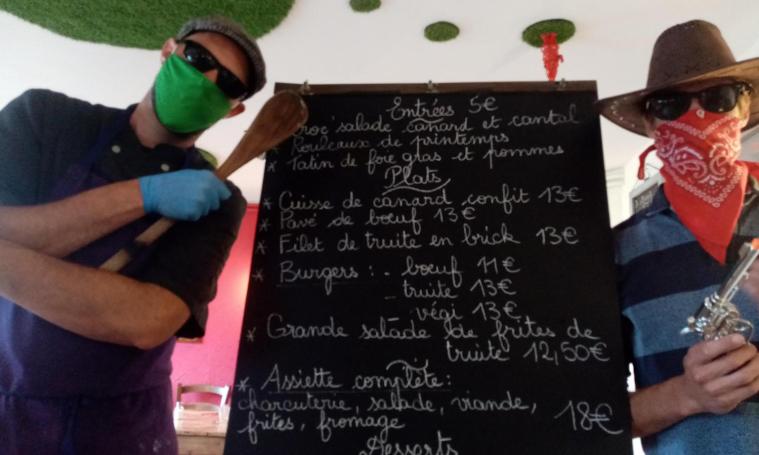 Entrées 5€
croc' salade canard et cantal
Rouleaux de printemps
* Tatin de foie gras et pommes
Plats
* Cuisse de canard confit 13€
* Pavé de boeuf 13€
* Filet de truite en brick 13€
* Burgers : - boeuf 11€
- truite 13€
- végi 13€
* Grande salade de frites de
truite 12,50€
* Assiette complète :
charcuterie, salade, viande,
frites, fromage 18€
Desserts